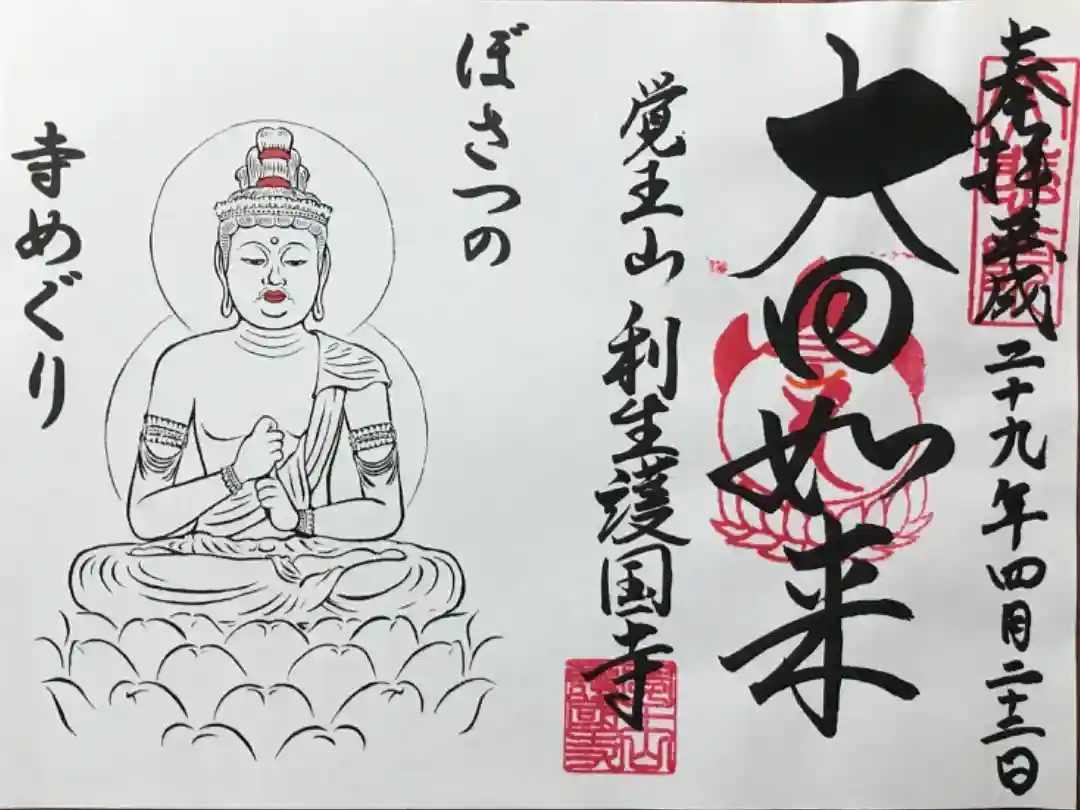 奉拝平成二十九年四月二十三日
大日如来
覚王山 利生護国寺
ぼさつの
寺めぐり